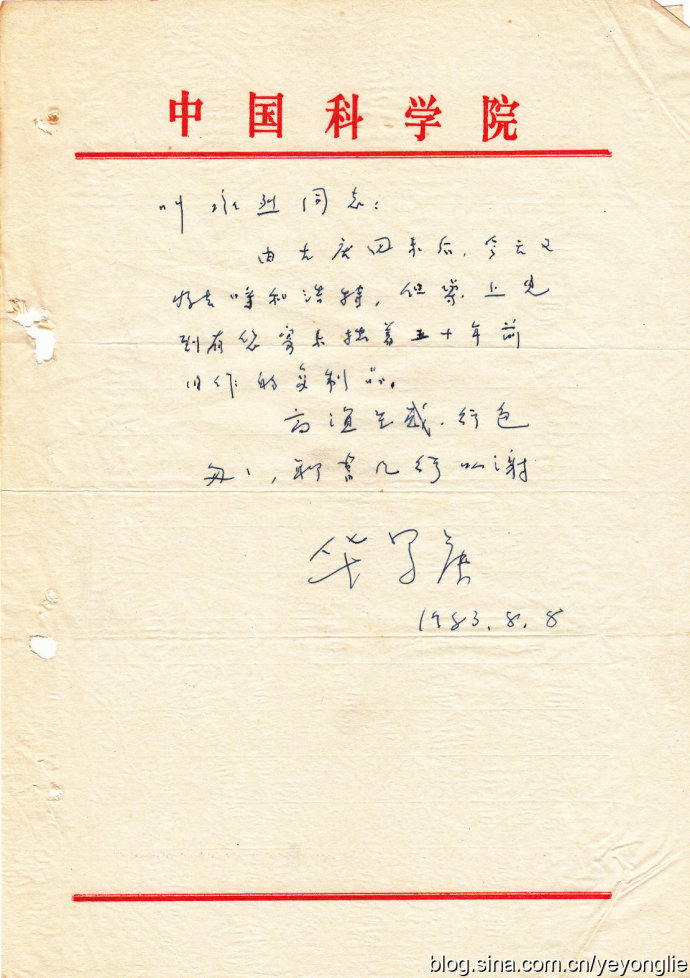 中国科学院
叶永烈同志：
由大庆回来后，今天又
将去呼和浩特，但案上见
到有您寄来拙著五十年前
旧作的复制品。
高谊至感．行色
匆匆，聊书几行以谢
华罗庚
1983.8.8
blog.sina.com.cn/yeyonglie